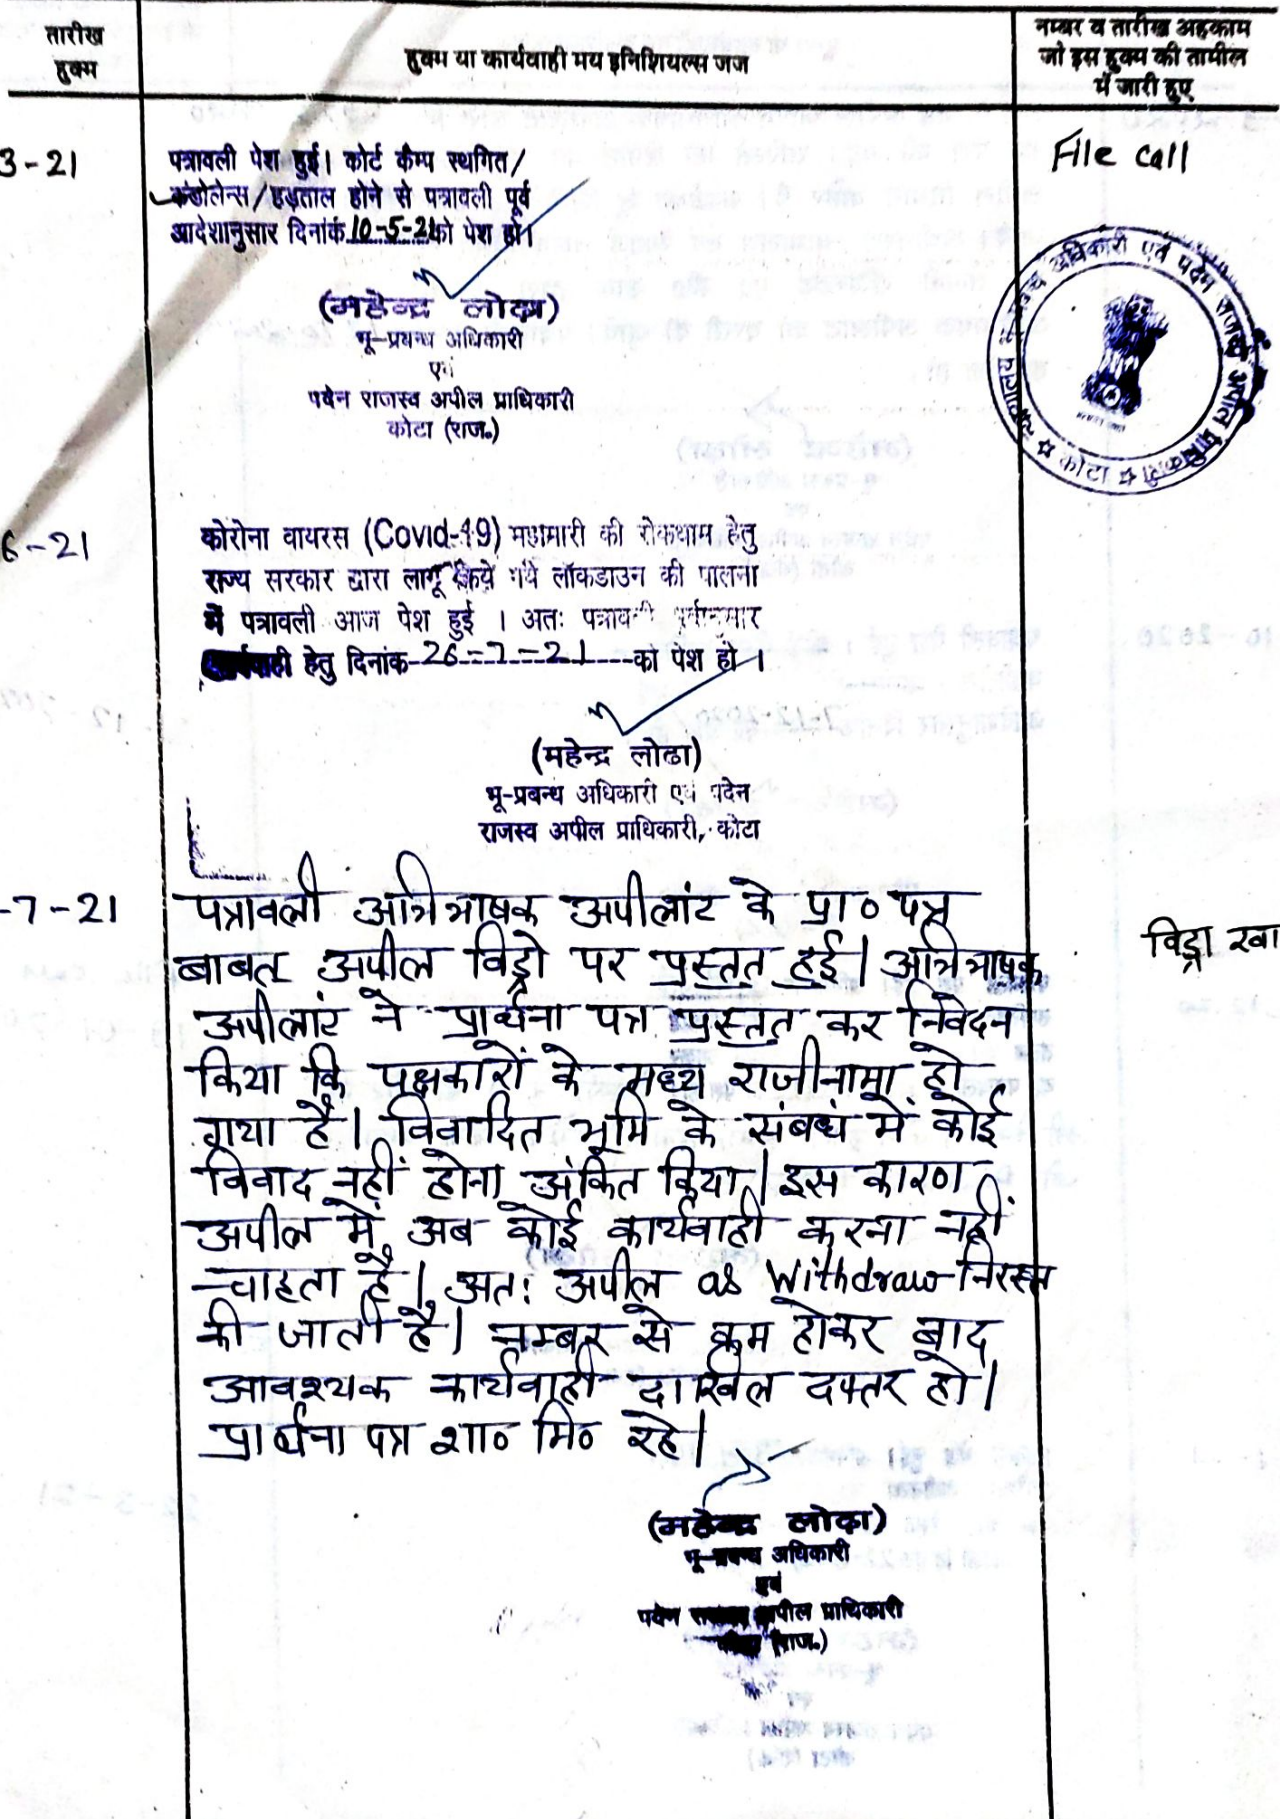 तारीख
हुक्म
हुक्म या कार्यवाही मय इनिशियल्स जज
नम्बर व तारीख अहकाम
जो इस हुक्म की तामील
में जारी हुए
3-21
पत्रावली पेश हुई। कोर्ट कैम्प स्थगित/
कंडोलेन्स/हड़ताल होने से पत्रावली पूर्व
आदेशानुसार दिनांक 10-5-21 को पेश हो।
File call
(महेन्द्र लोढ़ा)
भू-प्रबन्ध अधिकारी
एवं
पदेन राजस्व अपील प्राधिकारी
कोटा (राज.)
अधिकारी एवं पदेन राजस्व अपील प्राधिकारी कोटा
6-21
कोरोना वायरस (Covid-19) महामारी की रोकथाम हेतु
राज्य सरकार द्वारा लागू किये गये लॉकडाउन की पालना
में पत्रावली आज पेश हुई । अतः पत्रावली पूर्वानुसार
कार्यवाही हेतु दिनांक 26-7-21 को पेश हो ।
(महेन्द्र लोढा)
भू-प्रबन्ध अधिकारी एवं पदेन
राजस्व अपील प्राधिकारी, कोटा
-7-21
पत्रावली अभिभाषक अपीलांट के प्रा० पत्र
बाबत अपील विड्रो पर प्रस्तुत हुई। अभिभाषक
अपीलांट ने प्रार्थना पत्र प्रस्तुत कर निवेदन
किया कि पक्षकारों के मध्य राजीनामा हो
गया है। विवादित भूमि के संबंध में कोई
विवाद नहीं होना अंकित किया। इस कारण
अपील में अब कोई कार्यवाही करना नहीं
चाहता है। अतः अपील as Withdraw निरस्त
की जाती है। नम्बर से कम होकर बाद
आवश्यक कार्यवाही दाखिल दफ्तर हो।
प्रार्थना पत्र शा० मि० रहे।
विड्रा
(महेन्द्र लोढ़ा)
भू-प्रबन्ध अधिकारी
एवं
पदेन राजस्व अपील प्राधिकारी
(राज.)